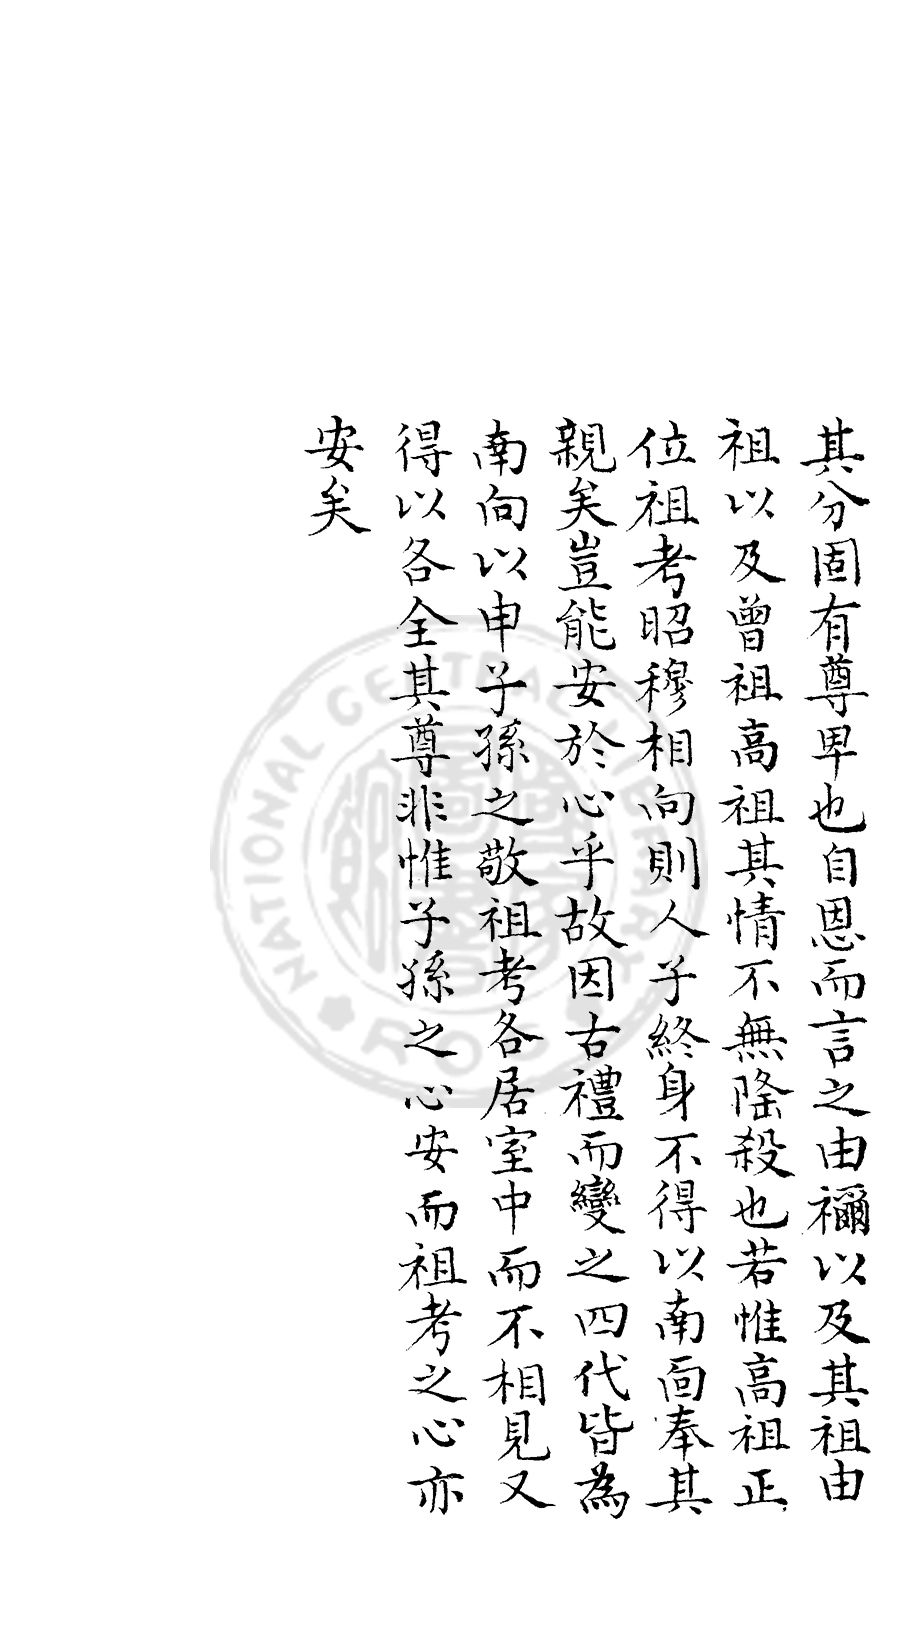 其分固有尊卑也自恩而言之由禰以及其祖由
祖以及曾祖高祖其情不無隆殺也若惟高祖正
位祖考昭穆相向則人子終身不得以南面奉其
親矣豈能安於心乎故因古禮而變之四代皆為
南向以申子孫之敬祖考各居室中而不相見又
得以各全其尊非惟子孫之心安而祖考之心亦
安矣
NATIONAL CENTRAL LIBRARY
R.O.C.